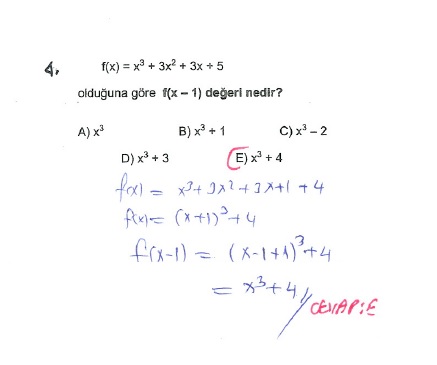 4. f(x) = x³ + 3x² + 3x + 5
olduğuna göre f(x – 1) değeri nedir?
A) x³ B) x³ + 1 C) x³ – 2
D) x³ + 3 E) x³ + 4
f(x) = x³ + 3x² + 3x + 1 + 4
f(x) = (x+1)³ + 4
f(x-1) = (x-1+1)³ + 4
= x³ + 4 //
CEVAP:E